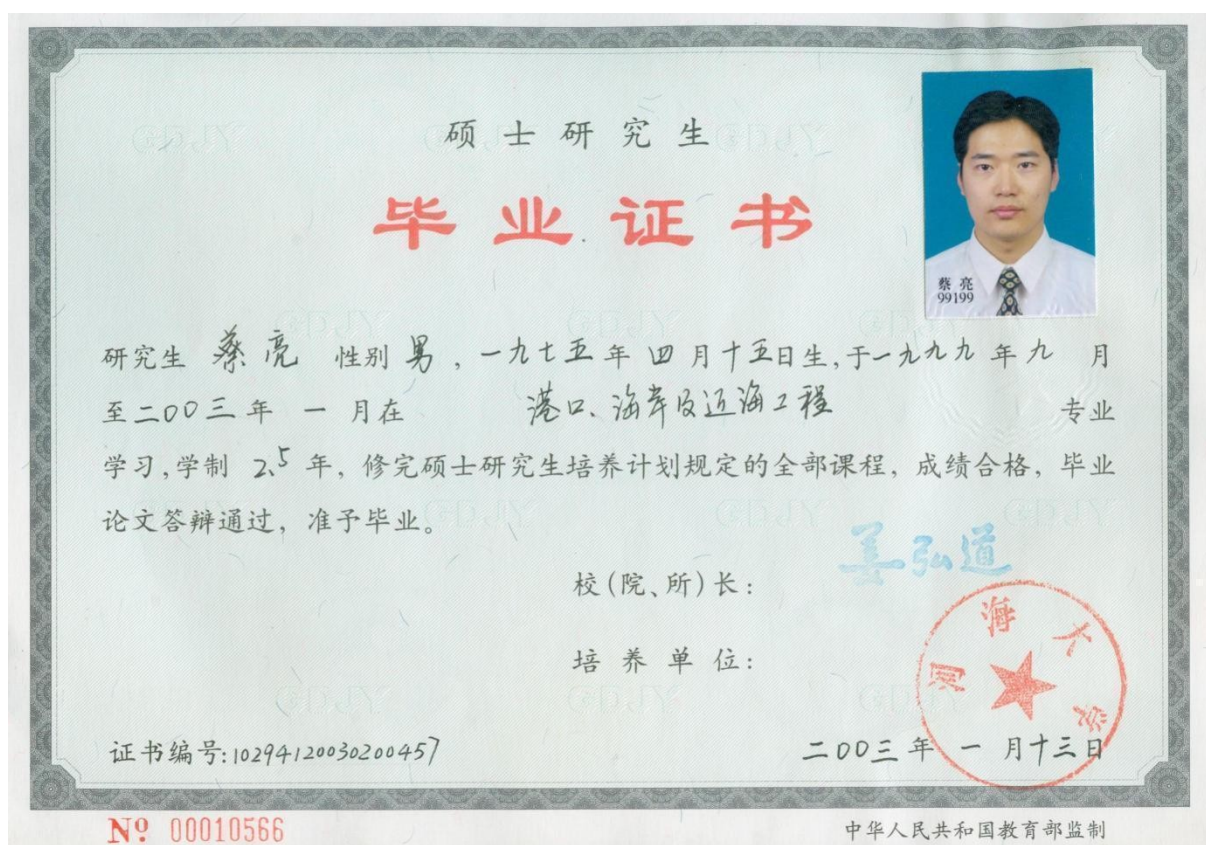 硕士研究生
毕业证书
蔡亮
99199
研究生 蔡亮 性别 男，一九七五年四月十五日生，于一九九九年九月
至二〇〇三年一月在 港口、海岸及近海工程 专业
学习，学制 2.5 年，修完硕士研究生培养计划规定的全部课程，成绩合格，毕业
论文答辩通过，准予毕业。
姜弘道
校(院、所)长：
河海大学
培养单位：
证书编号：102941200302000457
二〇〇三年一月十三日
№ 00010566
中华人民共和国教育部监制